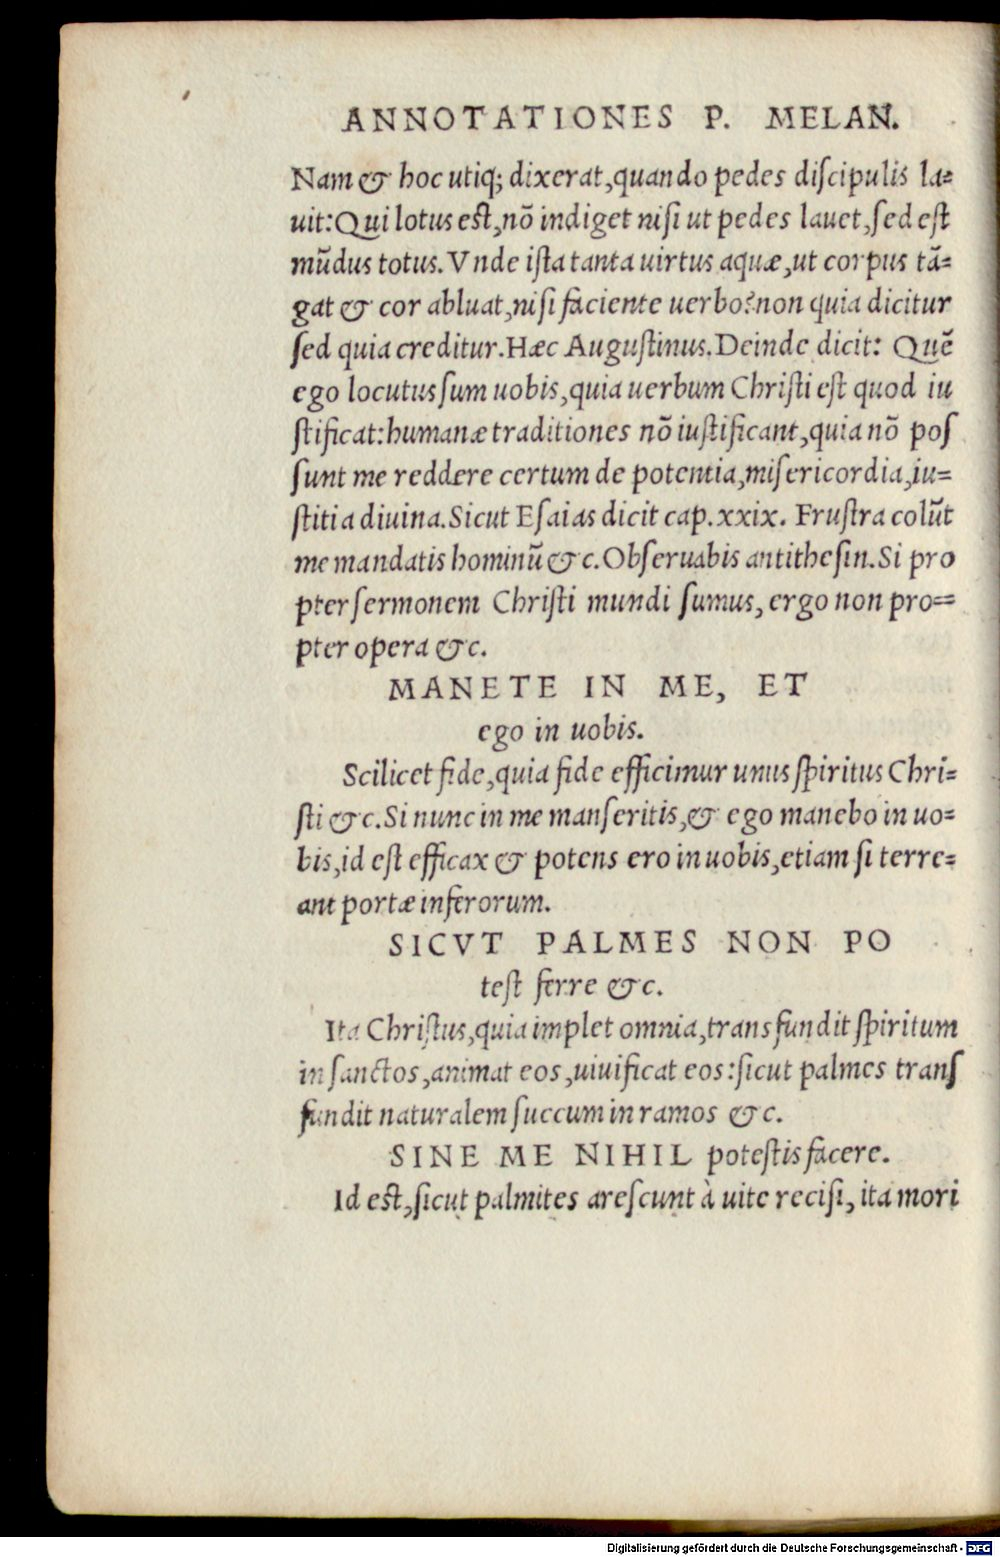 ANNOTATIONES P. MELAN.
Nam & hoc utiq; dixerat, quando pedes diſcipulis la⸗
uit: Qui lotus eſt, nō indiget niſi ut pedes lauet, ſed eſt
mūdus totus. Vnde iſta tanta uirtus aquæ, ut corpus tā⸗
gat & cor abluat, niſi faciente uerbo? non quia dicitur
ſed quia creditur. Hæc Auguſtinus. Deinde dicit: Quē
ego locutus ſum uobis, quia uerbum Chriſti eſt quod iu
ſtificat: humanæ traditiones nō iuſtificant, quia nō poſ
ſunt me reddere certum de potentia, miſericordia, iu⸗
ſtitia diuina. Sicut Eſaias dicit cap. xxix. Fruſtra colūt
me mandatis hominū &c. Obſeruabis antitheſin. Si pro
pter ſermonem Chriſti mundi ſumus, ergo non pro⸗
pter opera &c.
MANETE IN ME, ET
ego in uobis.
Scilicet fide, quia fide efficimur unus ſpiritus Chri⸗
ſti &c. Si nunc in me manſeritis, & ego manebo in uo⸗
bis, id eſt efficax & potens ero in uobis, etiam ſi terre⸗
ant portæ inferorum.
SICVT PALMES NON PO
teſt ferre &c.
Ita Chriſtus, quia implet omnia, transfundit ſpiritum
in ſanctos, animat eos, uiuificat eos: ſicut palmes tranſ
fundit naturalem ſuccum in ramos &c.
SINE ME NIHIL poteſtis facere.
Id eſt, ſicut palmites areſcunt à uite reciſi, ita mori
Digitalisierung gefördert durch die Deutsche Forschungsgemeinschaft - DFG